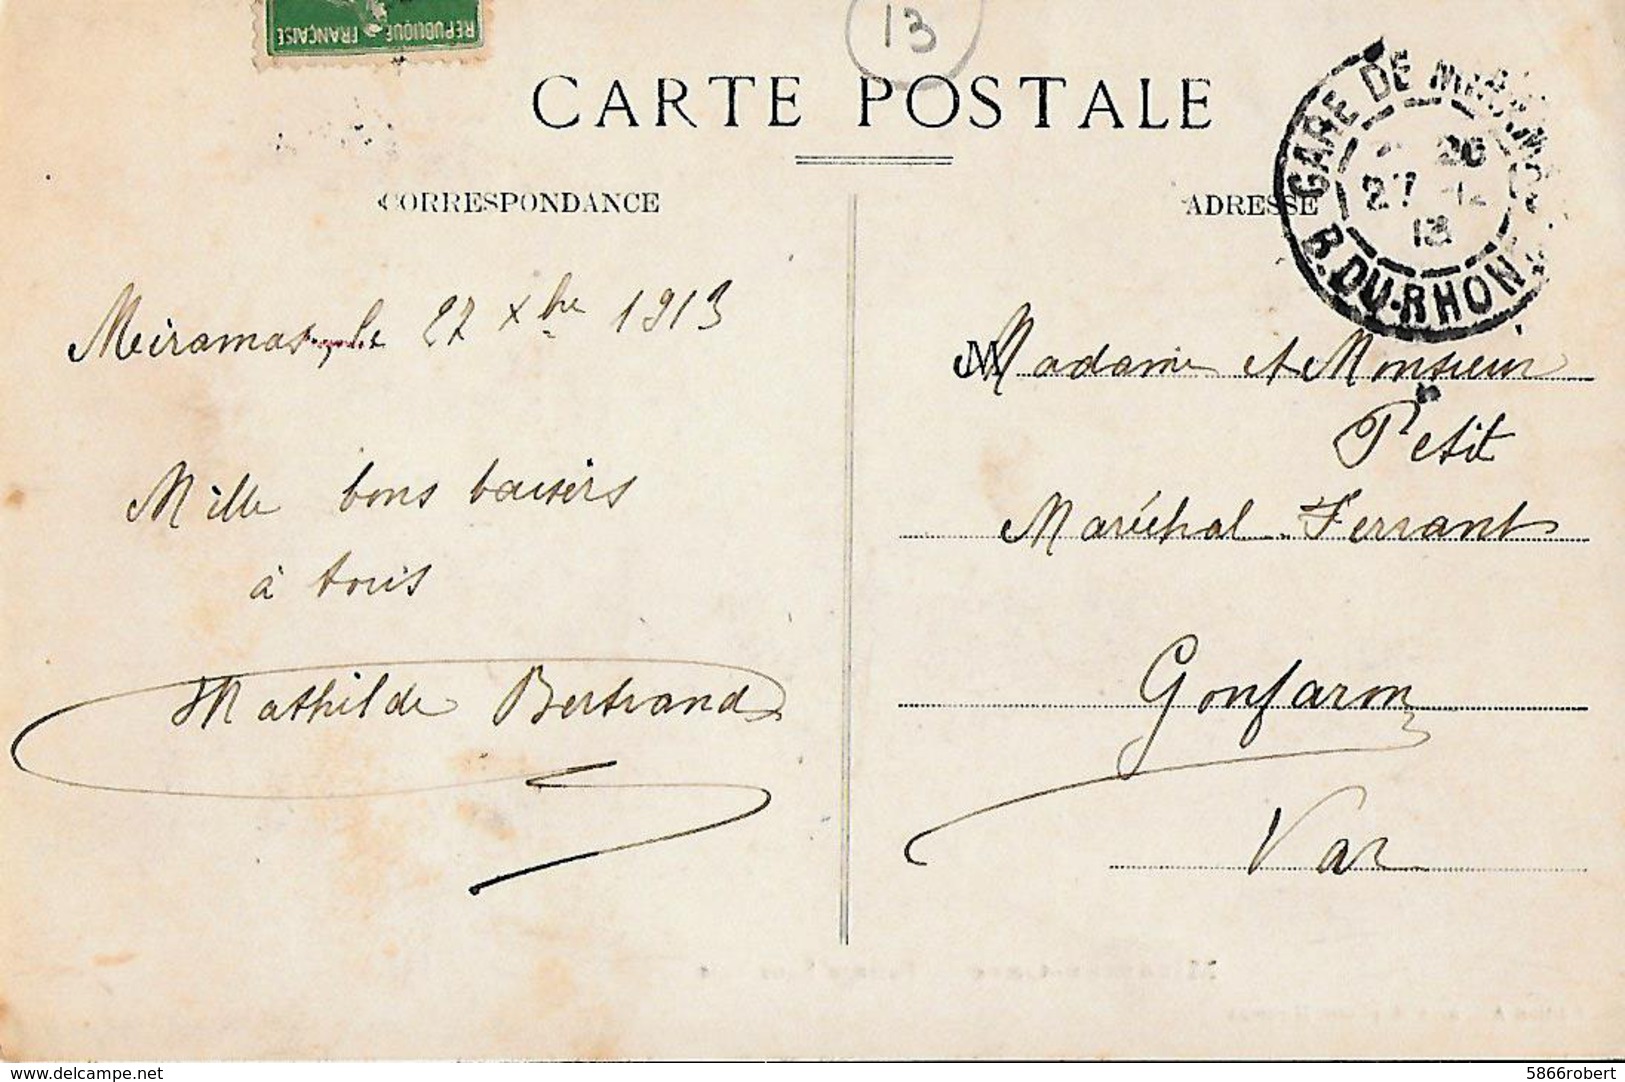 REPUBLIQUE FRANÇAISE
13
CARTE POSTALE
CORRESPONDANCE
ADRESSE
GARE DE MIRAMAS
26
27 12
13
B. DU-RHONE
Meiramas, le 27 Xbre 1913
Mille bons baisers
à tous
Mathilde Bertrand
Madame et Monsieur
Petit
Maréchal-Ferrant
Gonfaron
Var
https://www.delcampe.net
5866robert